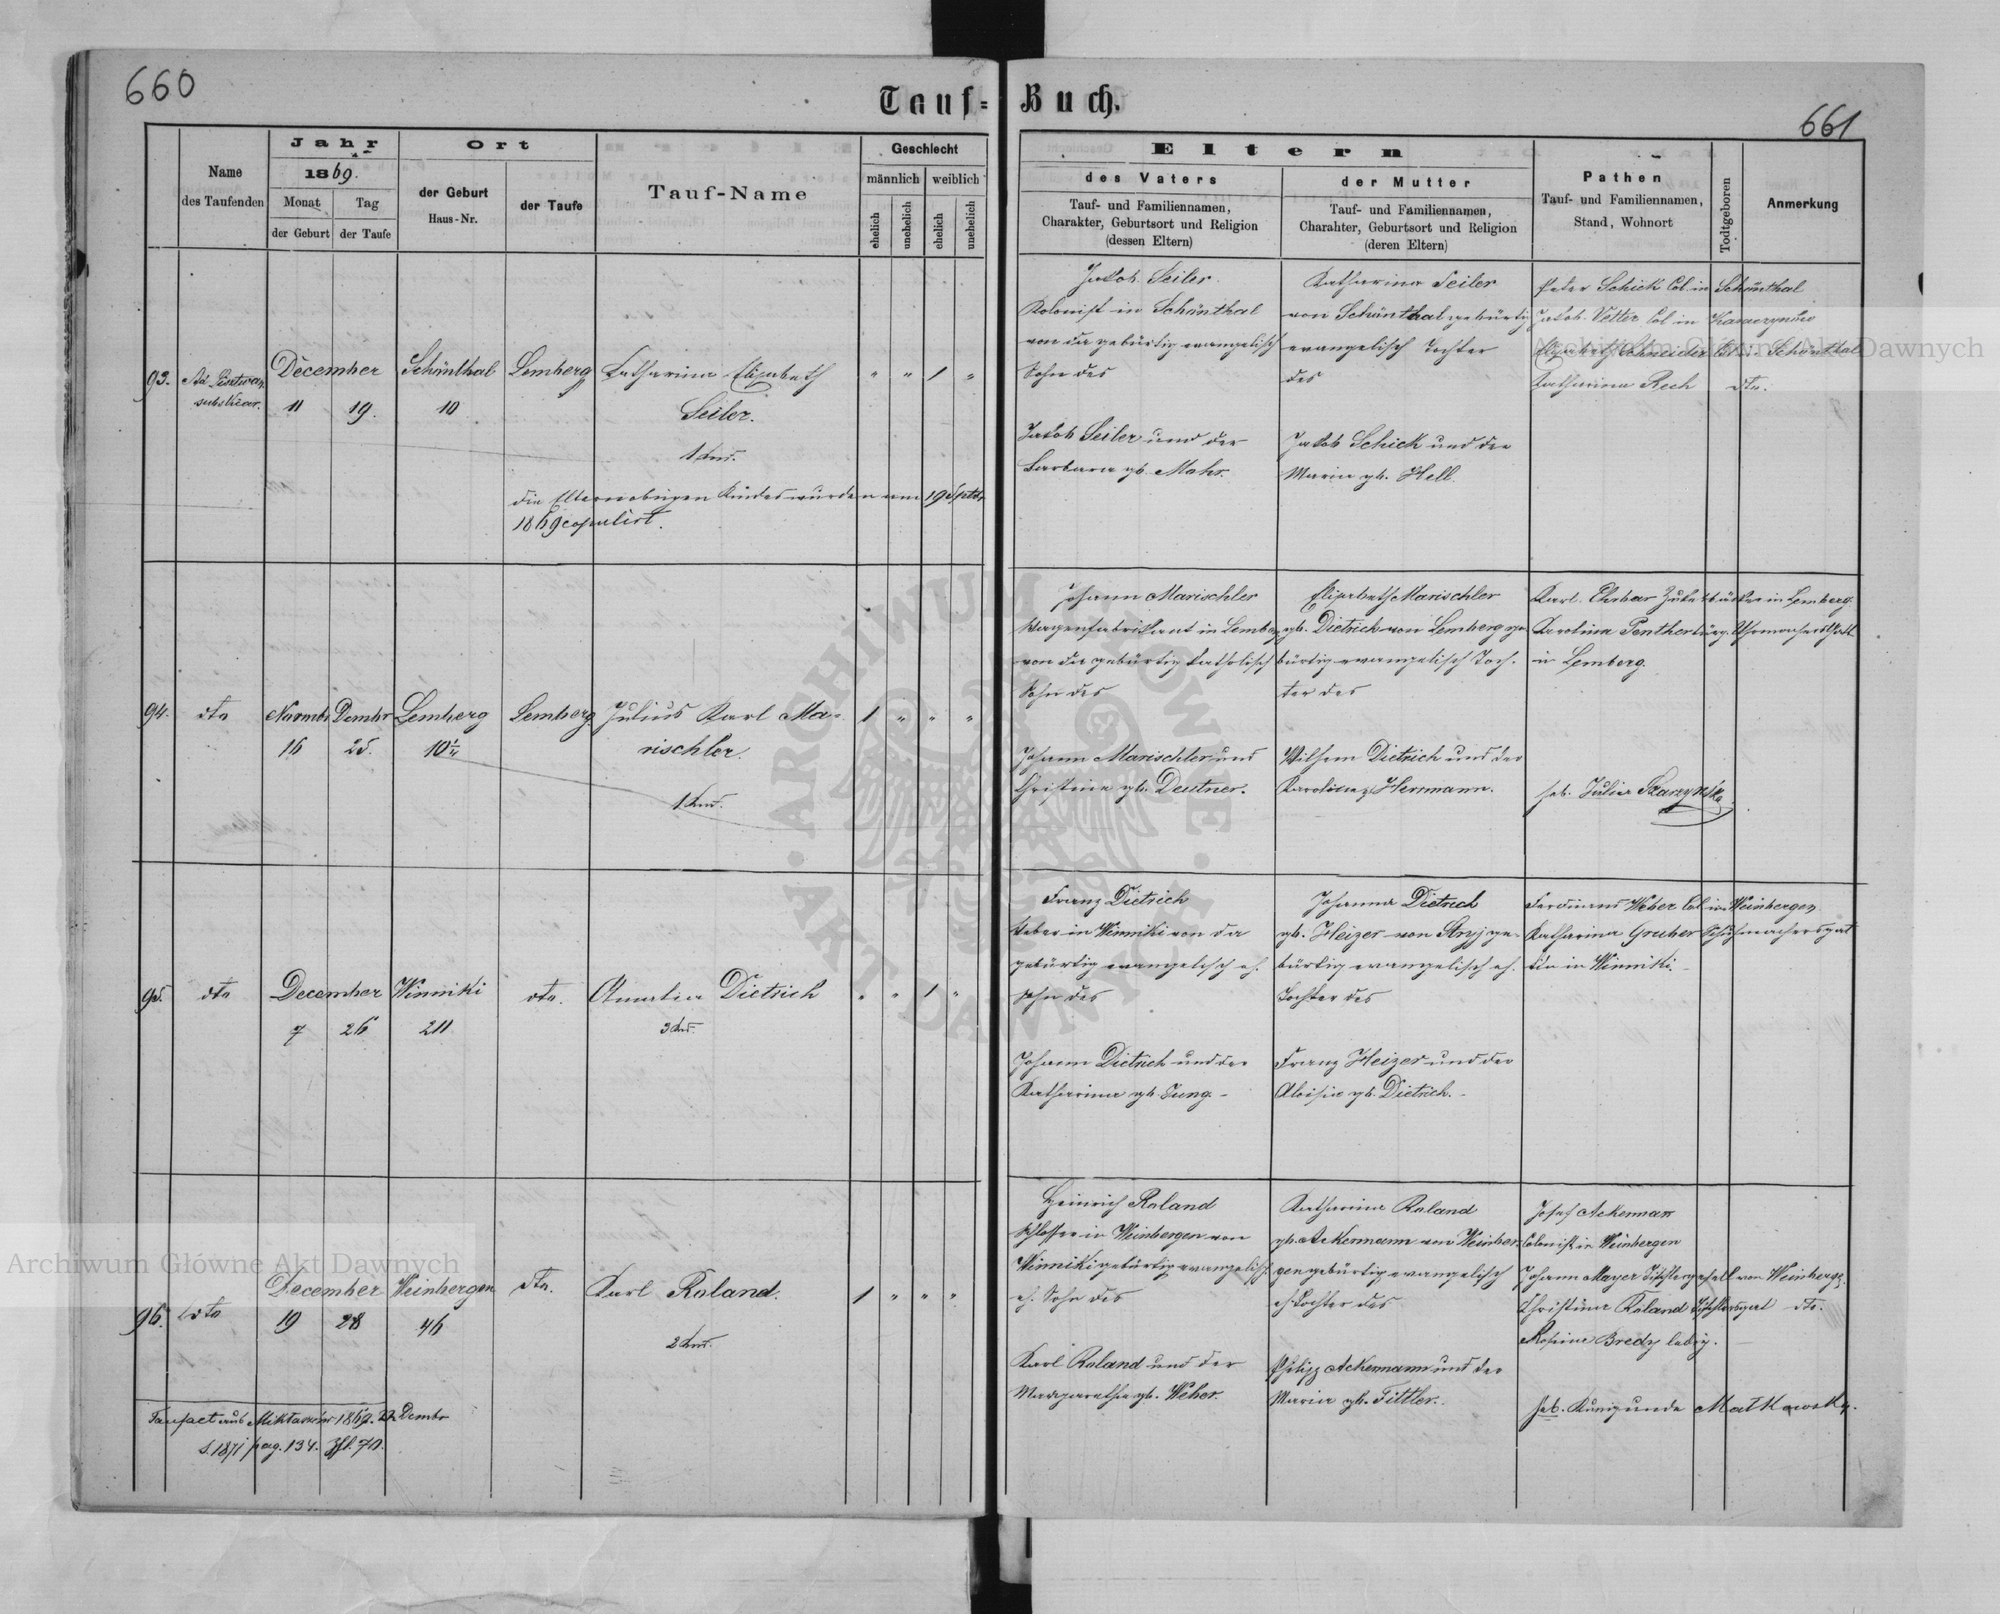 660
Tauf-Buch.
661
Name
des Taufenden
Jahr
1869.
Monat
der Geburt
Tag
der Taufe
Ort
der Geburt
Haus-Nr.
der Taufe
Tauf-Name
Geschlecht
männlich
weiblich
ehelich
unehelich
ehelich
unehelich
Eltern
des Vaters
Tauf- und Familiennamen,
Charakter, Geburtsort und Religion
(dessen Eltern)
der Mutter
Tauf- und Familiennamen,
Charahter, Geburtsort und Religion
(deren Eltern)
Pathen
Tauf- und Familiennamen,
Stand, Wohnort
Todtgeboren
Anmerkung
93.
December
11
19.
Schönthal
10
Lemberg
Catharina Elisabeth
Seiler.
1 Kind.
" " 1 "
die Eltern obigen Kindes wurden am 19 Septbr
1869 copulirt.
Jakob Seiler
Kolonist in Schönthal
von da gebürtig evangelisch
Sohn des
Jakob Seiler und der
Barbara gb. Mohr.
Katharina Seiler
von Schönthal gebürtig
evangelisch Tochter
des
Jakob Schick und der
Maria gb. Hell.
Peter Schick Col. in Schönthal
Jakob Vetter Col in
Elisabeth Schneider Schönthal
Katharina Rech dto.
94.
dto
Novmbr
16
Dembr
25.
Lemberg
Lemberg
Julius Karl Ma-
rischler.
1 Kind.
1 " " "
Johann Marischler
Wagenfabrikant in Lemberg
von da gebürtig katholisch
Sohn des
Johann Marischler und
Christina gb. Deutner.
Elisabeth Marischler
gb. Dietrich von Lemberg ge-
bürtig evangelisch Toch-
ter des
Wilhem Dietrich und der
Karolina gb Herrmann.
Karl Ehrbar in Lemberg.
Karolina
in Lemberg.
heb. Julia
95.
dto
December
7
26
Winniki
211
dto.
Amalia Dietrich
3 Kind.
" " 1 "
Franz Dietrich
Weber in Winniki von da
gebürtig evangelisch eh.
Sohn des
Johann Dietrich und der
Katharina gb. Jung. -
Johanna Dietrich
gb. Heizer von Stryj ge-
bürtig evangelisch eh.
Tochter des
Franz Heizer und der
Aloisia gb. Dietrich. -
Ferdinand Weber Col in Weinbergen
Katharina Gruber Schuhmachersgat
tin in Winniki. -
96.
dto
December
19
28
Weinbergen
46
dto.
Karl Roland.
2 Kind.
1 " " "
Heinrich Roland
Schlosser in Weinbergen von
Winniki gebürtig evangelisch
eh. Sohn des
Karl Roland und der
Margaretha gb. Weber.
Katharina Roland
gb. Ackermann von Weinber-
gen gebürtig evangelisch
eh Tochter des
Philipp Ackermann und der
Maria gb. Tittler.
Josef Ackermann
Colonist in Weinbergen
Johann Mayer Tischlergesell von Weinbergen
Christina Roland Tischlersgat dto.
Rosina Bredy ledig.
heb. Kunigunde Małkowsky.
Taufact aus 1869. 22 Dembr
S. 1871 pag. 134. Zhl. 70.
Archiwum Główne Akt Dawnych
Archiwum Główne Akt Dawnych
ARCHIWUM GŁÓWNE AKT DAWNYCH